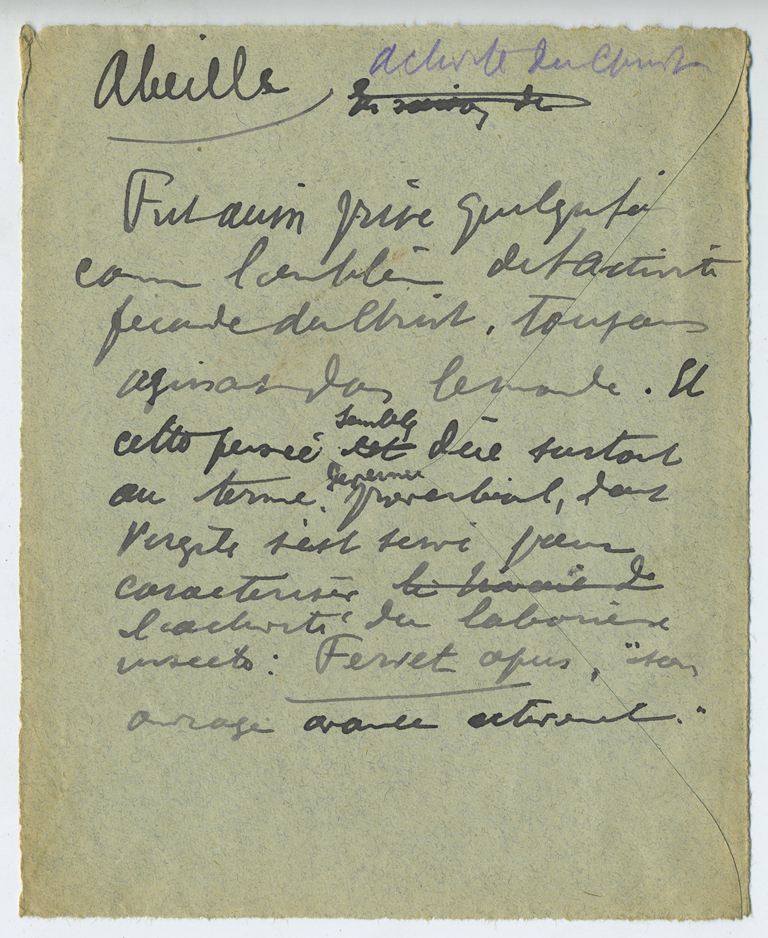 Abeille activité du Christ
Fut aussi prise quelquefois
comme l'emblème de l'activité
féconde du Christ, toujours
agissant dans le monde. Et
cette pensée semble est dûe surtout
au terme, devenu proverbial, dont
Virgile s'est servi pour
caractériser le travail de
l'activité du laborieux
insecte : Fervet opus, "son
ouvrage avance activement."